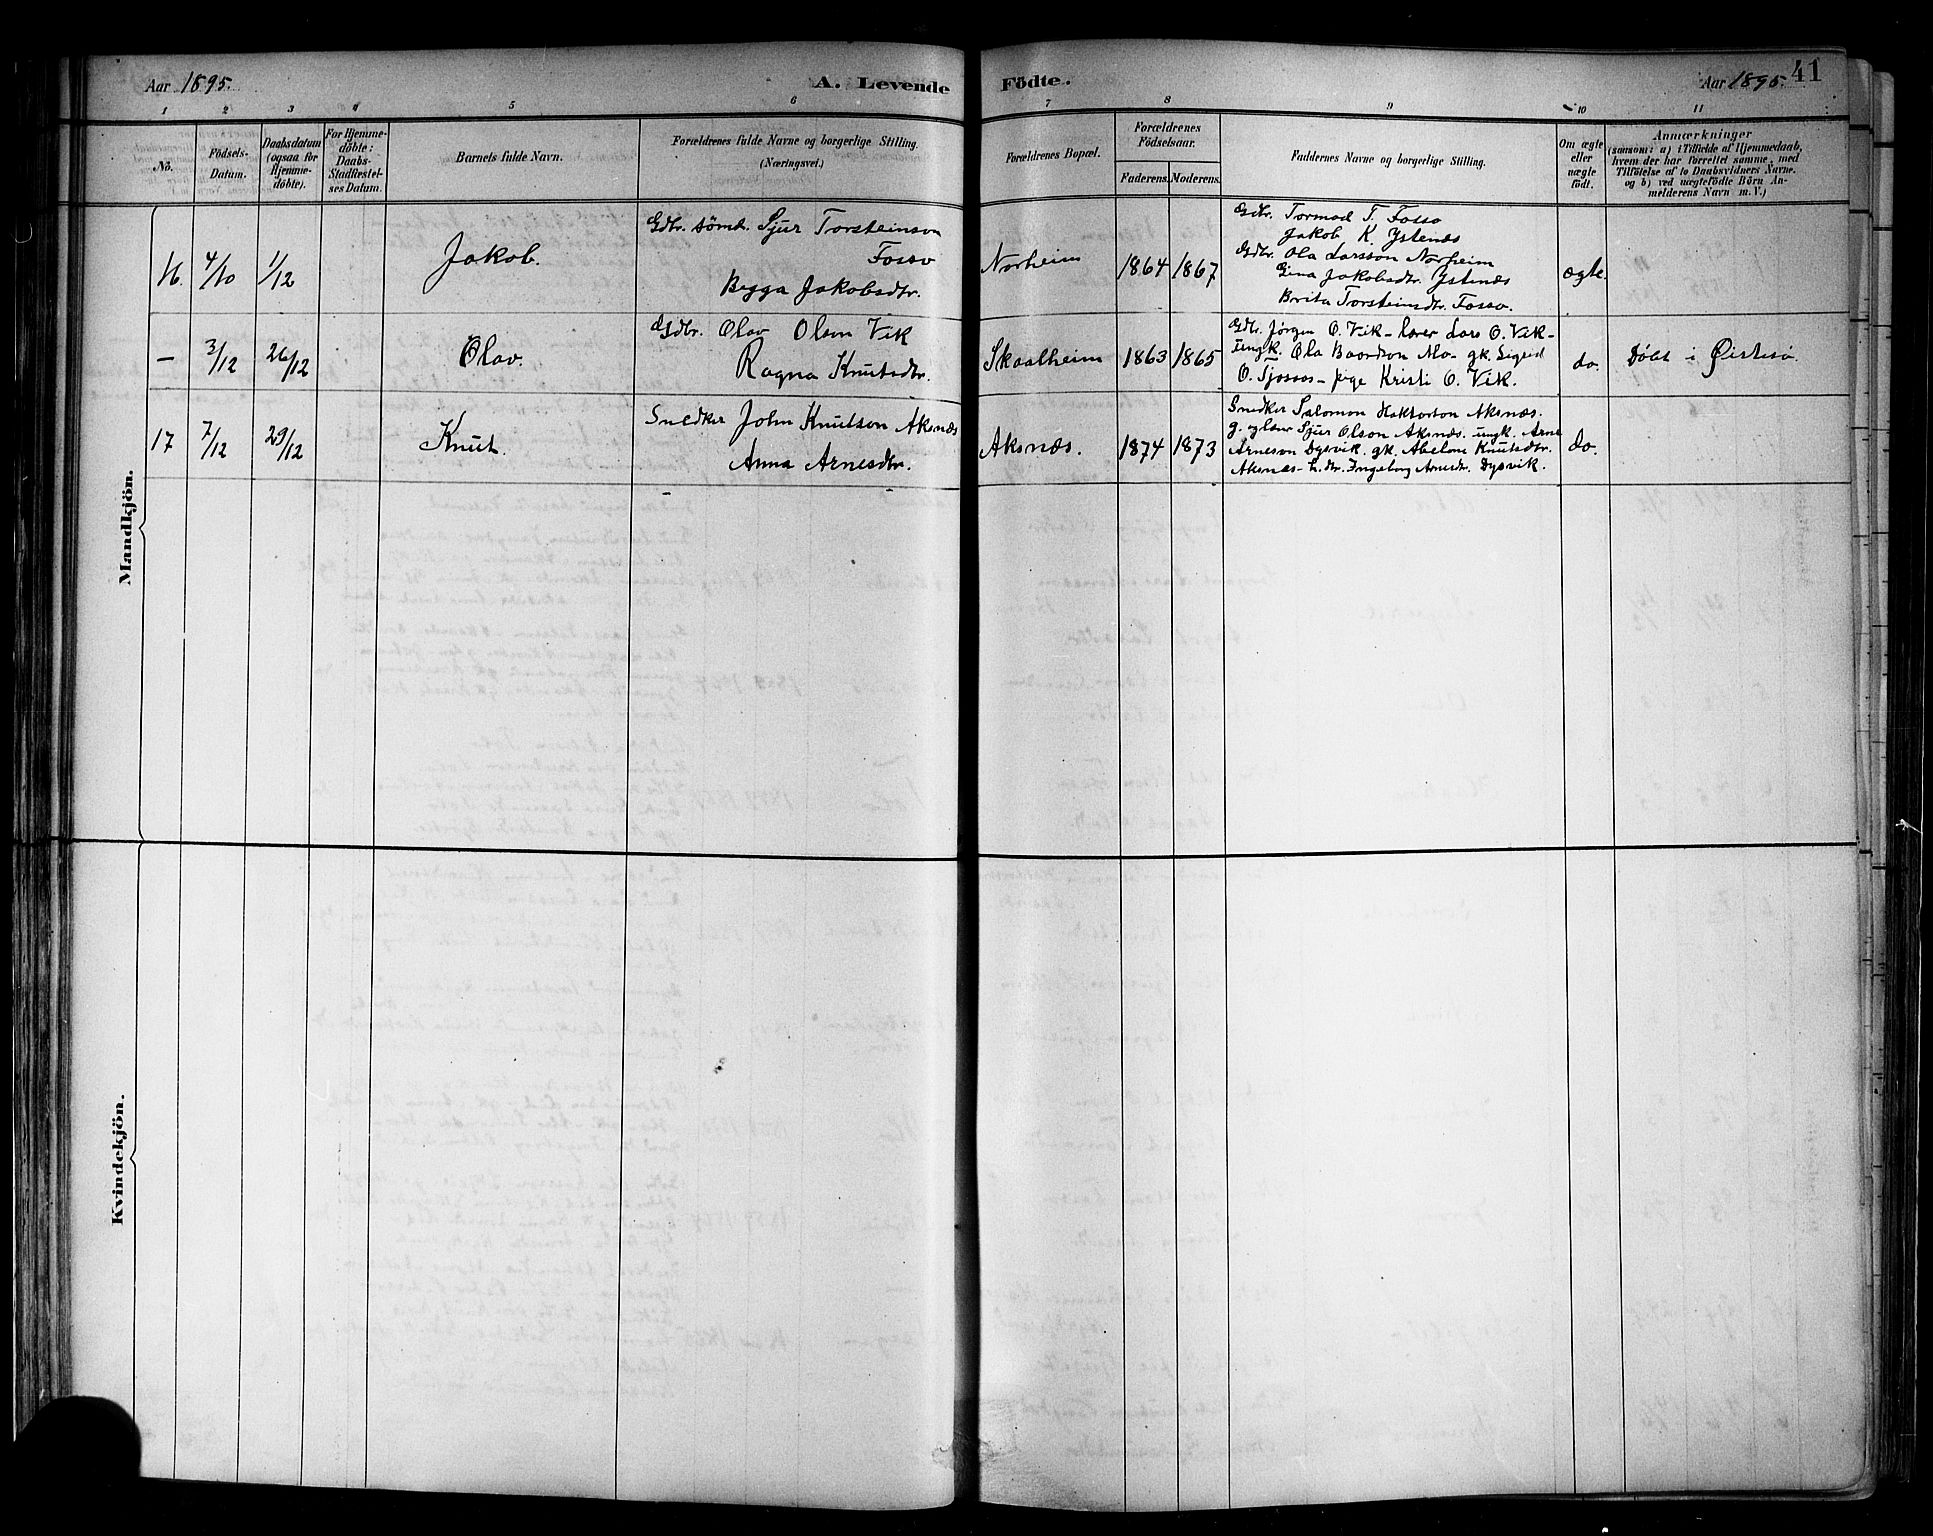 Aar 1895.
A. Levende
Födte.
Aar 1895.
41
1 2 3 4 5 6 7 8 9 10 11
No.
Födsels-
Datum.
Daabsdatum
(ogsaa for
Hjemme-
döbte).
For Hjemme-
döbte:
Daabs-
Stadfæstel-
ses Datum.
Barnets fulde Navn.
Forældrenes fulde Navne og borgerlige Stilling.
(Næringsvei.)
Forældrenes Bopæl.
Forældrenes
Födselsaar.
Faderens.
Moderens.
Faddernes Navne og borgerlige Stilling.
Om ægte
eller
uægte
födt.
Anmærkninger
(saasom: a) i Tilfælde af Hjemmedaab,
hvem der har forrettet samme, med
Tilföielse af to Daabsvidners Navne.
og b) ved uægtefödte Börn An-
melderens Navn m. V.)
Mandkjön.
16. 4/10 1/12
Jakob.
Gdbr. sömd. Sjur Torsteinson
Fosso
Begga Jakobsdtr.
Norheim
1864 1867
Gdbr. Tormod T. Fosso
Jakob K. Ystenæs
Gdbr. Ola Larsson Norheim
Gina Jakobsdtr. Ystenæs
Brita Torsteinsdtr. Fosso.
ægte.
— 3/12 26/12
Olav.
Gdbr. Olav Olson Vik
Ragna Knutsdtr.
Skaalheim
1863 1865
Gdbr. Jørgen O. Vik – lærer Lars O. Vik –
ungk. Ola Baardson Mo – gk. Sigrid
O. Sjosaas – pige Kristi O. Vik.
do.
Döbt i Øistesö.
17 7/12 29/12
Knut.
Snedker John Knutson Aksnæs
Anna Arnesdtr.
Aksnæs.
1874 1873
Snedker Salomon Haktorson Aksnæs.
Sjur Olson Aksnæs. ungk. Arne
Arneson Dysvik. gk. Abelone Knutsdtr.
Aksnæs – Ingeborg Arnesdr. Dysvik.
do.
Kvindekjön.